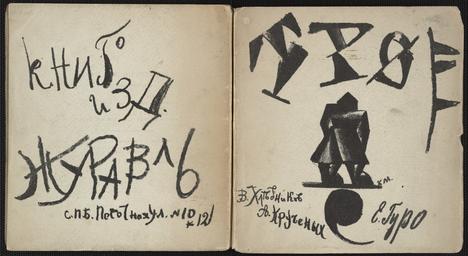 КНИГО
ИЗД.
ЖУРАВЛЬ
С.П.Б. Песочная ул. №10
к 12
ТРОЕ
К.М.
В. Хлѣбников
А. Крученых
Е. Гуро